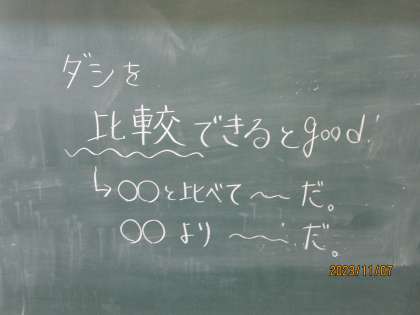 ダシを
比較できるとgood!
↳○○と比べて〜〜だ。
○○より〜〜だ。
2023/11/07